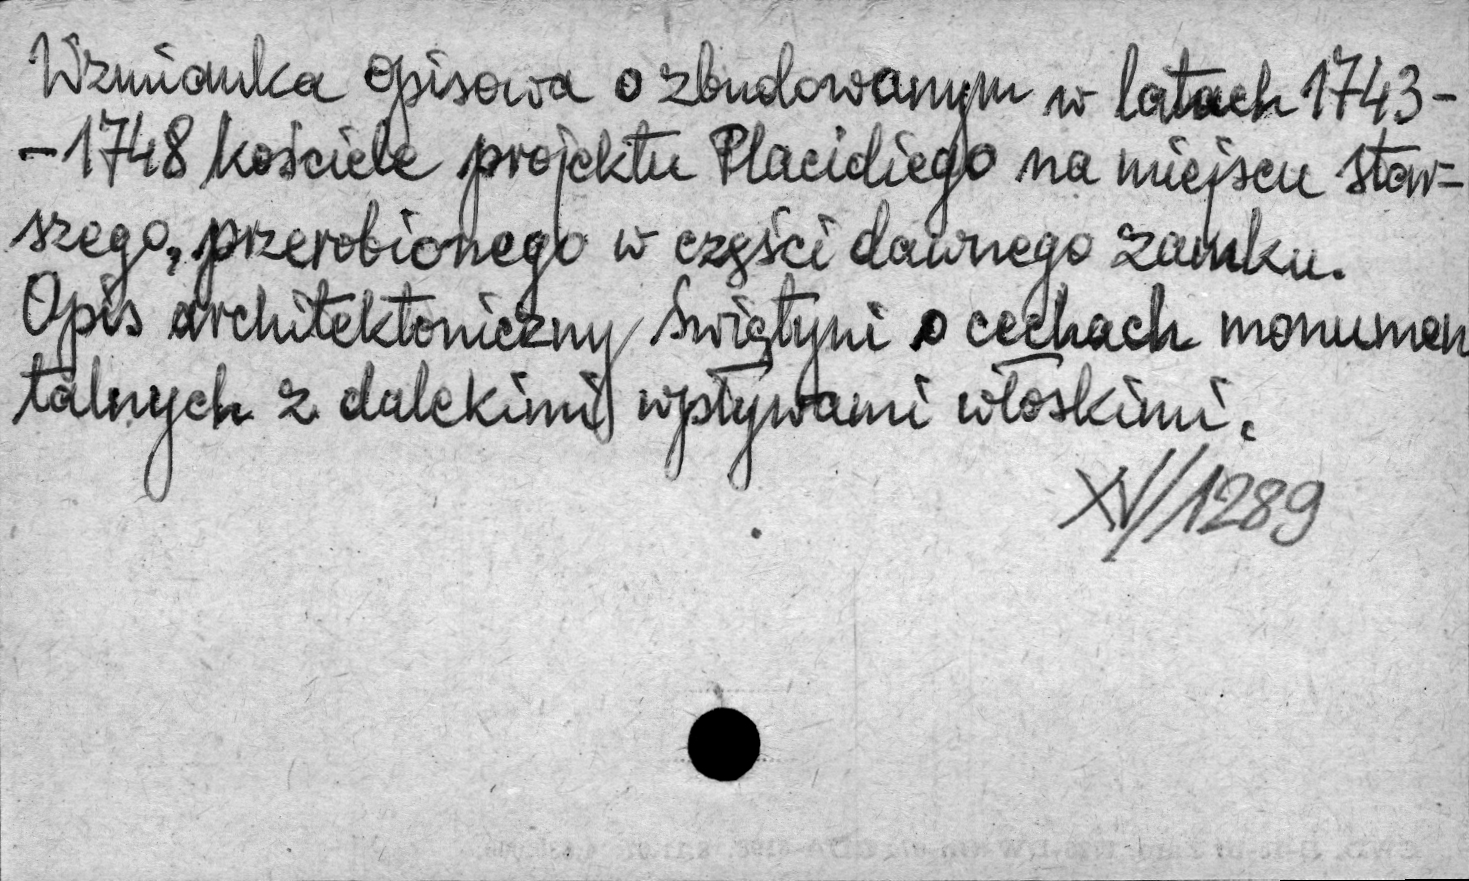 Wzmianka opisowa o zbudowanym w latach 1743-
-1748 kościele projektu Placidiego na miejscu star=
szego, przerobionego w części dawnego zamku.
Opis architektoniczny świątyni o cechach monumen
talnych z dalekimi wpływami włoskimi.
XV/1289